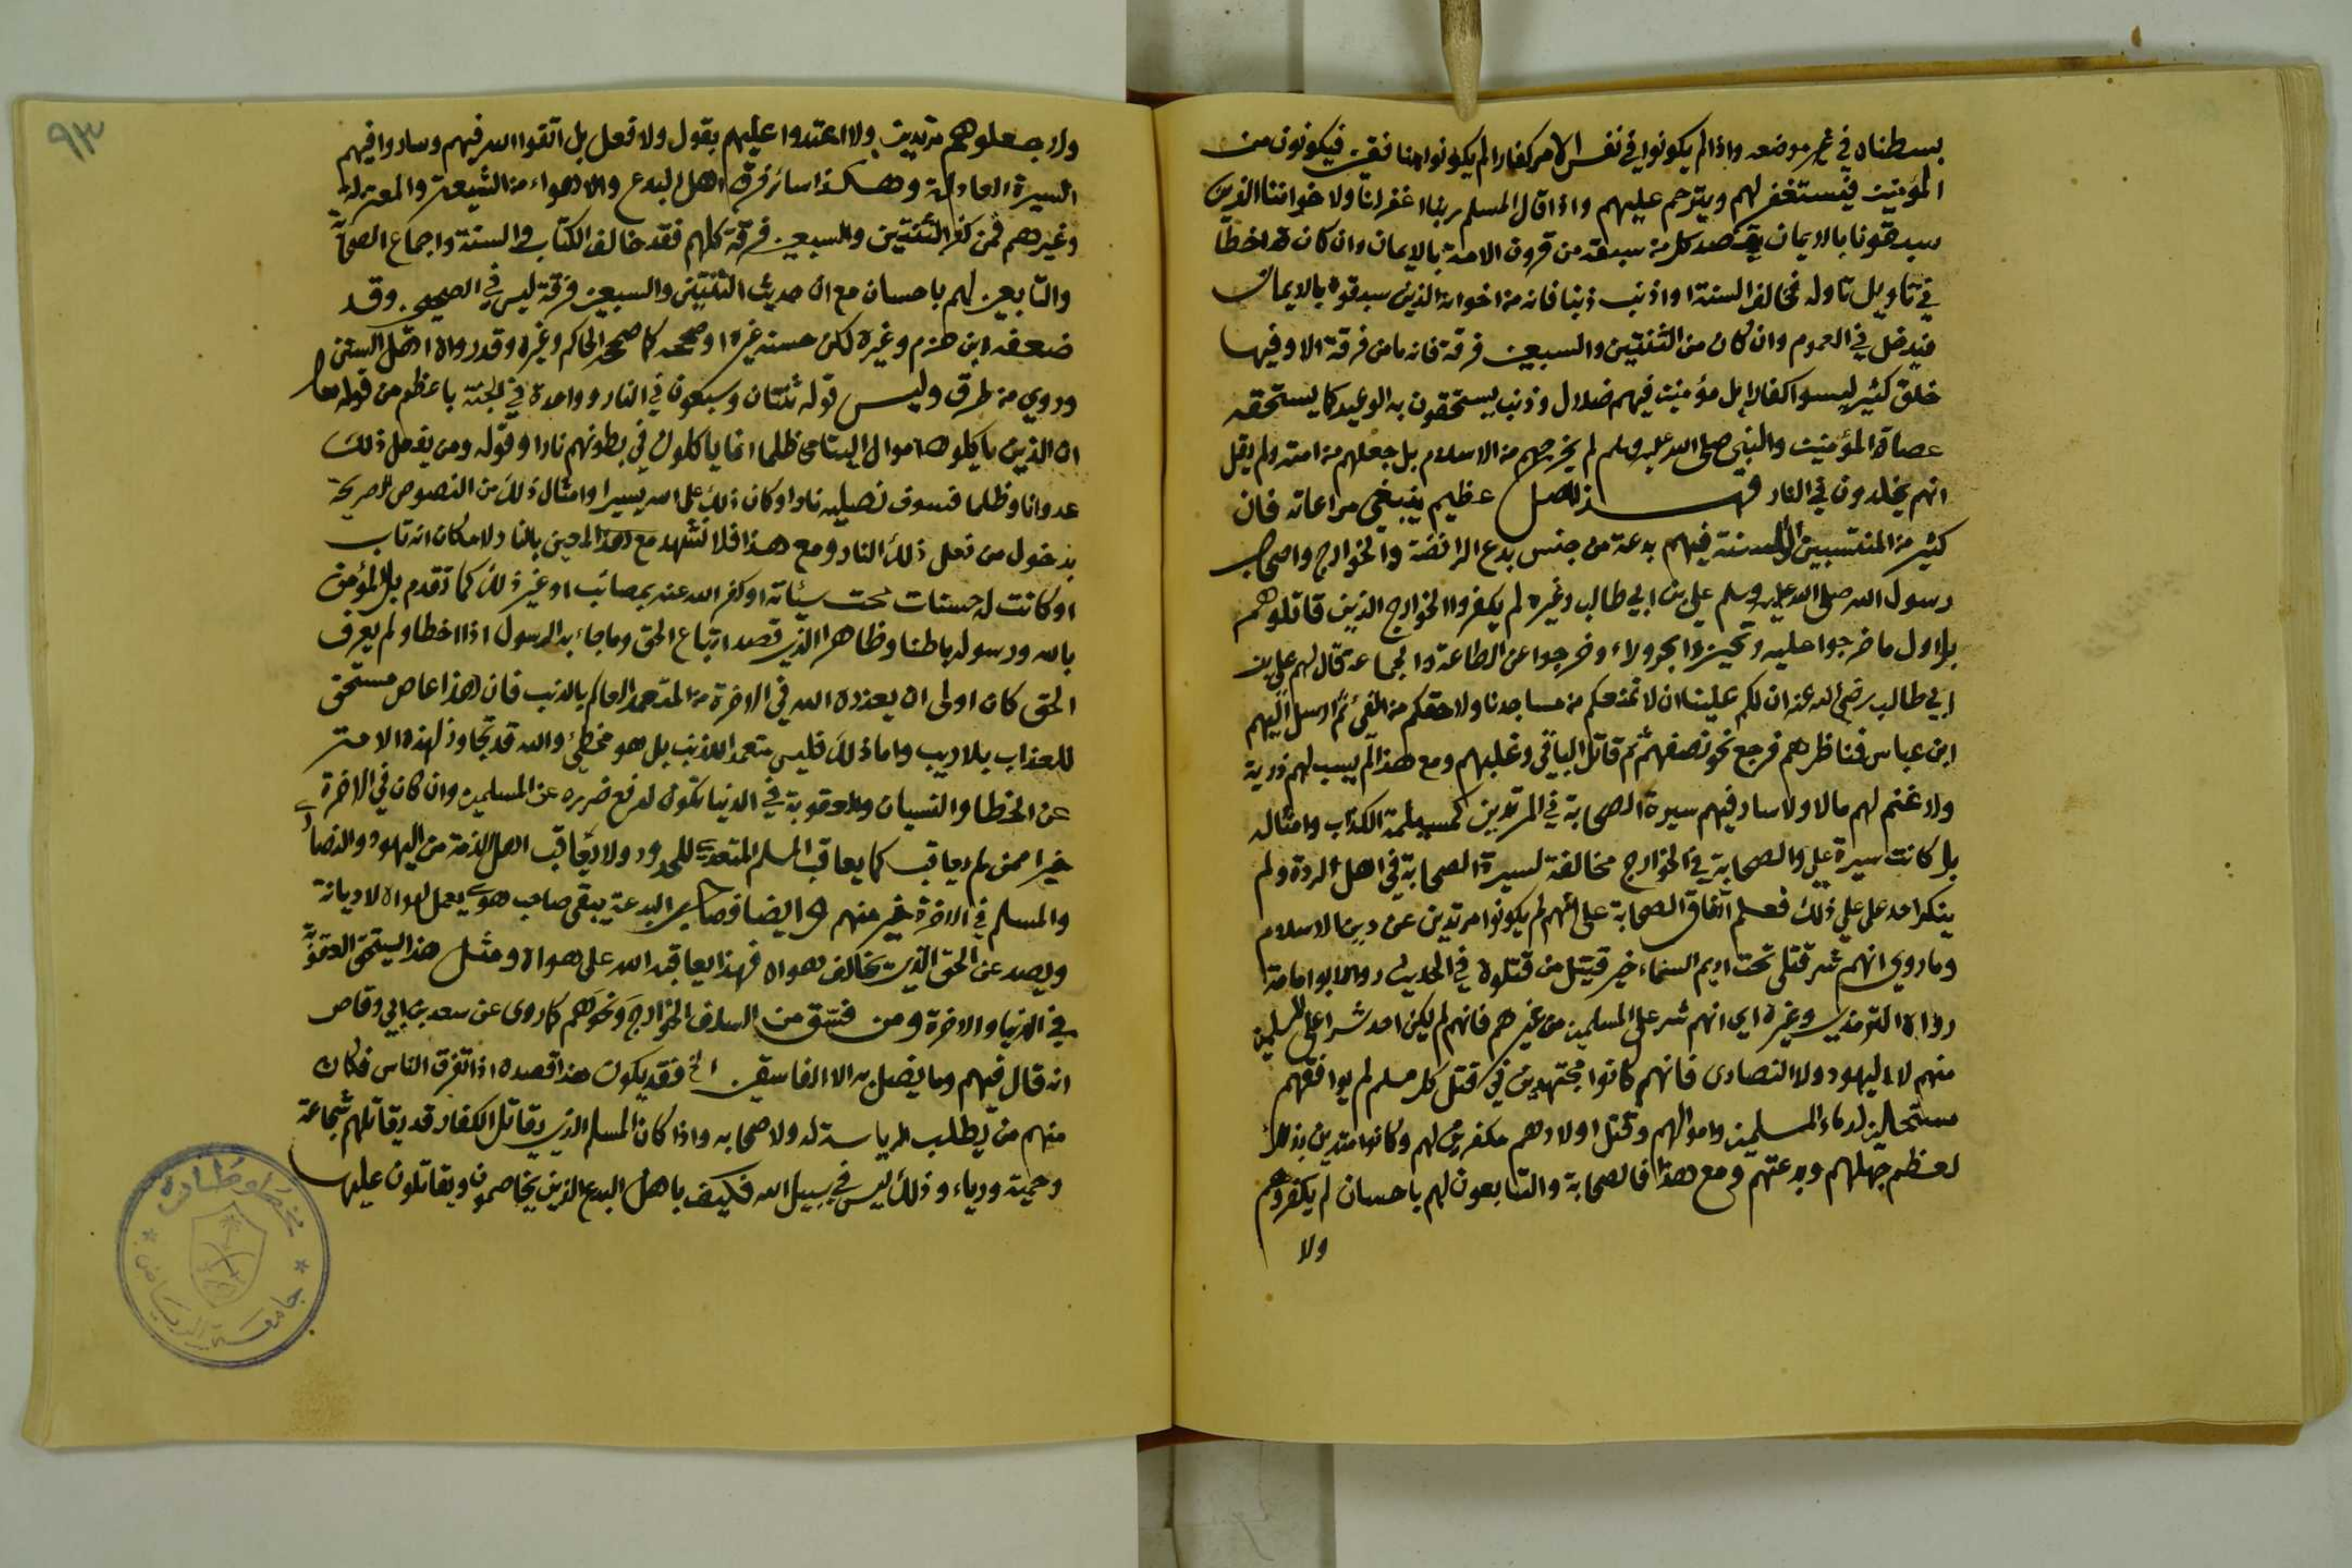 بسطناه في غير موضعه واذا لم يكونوا في نفس الامر كفارا لم يكونوا منافقين فيكونون من
المؤمنين فيستغفر لهم ويترحم عليهم واذا قال المسلم ربنا اغفر لنا ولاخواننا الذين
سبقونا بالايمان يقصد كل من سبقه من قرون الامة بالايمان وان كان قد اخطا
في تاويل تاوله فخالف السنة او اذنب ذنبا فانه من اخوانه الذين سبقوه بالايمان
فيدخل في العموم وان كان من الثنتين والسبعين فرقة فانه ما من فرقة الا وفيها
خلق كثير ليسوا كفارا بل مؤمنين فيهم ضلال وذنب يستحقون به الوعيد كما يستحقه
عصاة المؤمنين والنبي صلى الله عليه وسلم لم يخرجهم من الاسلام بل جعلهم من امته ولم يقل
انهم يخلدون في النار فهذا اصل عظيم ينبغي مراعاته فان
كثير من المنتسبين الى السنة فيهم بدعة من جنس بدع الرافضة والخوارج واصحاب
رسول الله صلى الله عليه وسلم علي بن ابي طالب وغيره لم يكفروا الخوارج الذين قاتلوهم
بل اول ما خرجوا عليه وتحيزوا بحرولاء وخرجوا عن الطاعة والجماعة قال لهم علي بن
ابي طالب رضي الله عنه ان لكم علينا ان لا نمنعكم من مساجدنا ولا حقكم من الفيء ثم ارسل اليهم
ابن عباس فناظرهم فرجع نحو نصفهم ثم قاتل الباقي وغلبهم ومع هذا لم يسب لهم ذرية
ولا غنم لهم مالا ولا سار فيهم سيرة الصحابة في المرتدين كمسيلمة الكذاب وامثاله
بل كانت سيرة علي والصحابة في الخوارج مخالفة لسيرة الصحابة في اهل الردة ولم
ينكر احد على علي ذلك فعلم اتفاق الصحابة على انهم لم يكونوا مرتدين عن دين الاسلام
وما روي انهم شر قتلى تحت اديم السماء خير قتيل من قتلوه في الحديث رواه ابوامامة
رواه الترمذي وغيره اي انهم شر على المسلمين من غيرهم فانهم لم يكن احد شرا على المسلمين
منهم لا اليهود ولا النصارى فانهم كانوا مجتهدين في قتل كل مسلم لم يوافقهم
مستحلين لدماء المسلمين واموالهم وقتل اولادهم مكفرين لهم وكانوا متدينين بذلك
لعظم جهلهم وبدعتهم ومع هذا فالصحابة والتابعون لهم باحسان لم يكفروهم
ولا
ولا جعلوهم مرتدين ولا اعتدوا عليهم بقول ولا فعل بل اتقوا الله فيهم وساروا فيهم
السيرة العادلة وهكذا سائر فرق اهل البدع والاهواء من الشيعة والمعتزلة
وغيرهم فمن كفر الثنتين والسبعين فرقة كلهم فقد خالف الكتاب والسنة واجماع الصحابة
والتابعين لهم باحسان مع ان حديث الثنتين والسبعين فرقة ليس في الصحيحين وقد
ضعفه ابن حزم وغيره لكن حسنه غيره او صححه كما صححه الحاكم وغيره وقد رواه اهل السنن
وروي من طرق وليس قوله ثنتان وسبعون في النار وواحدة في الجنة باعظم من قوله تعالى
ان الذين ياكلون اموال اليتامى ظلما انما ياكلون في بطونهم نارا وقوله ومن يفعل ذلك
عدوانا وظلما فسوف نصليه نارا وكان ذلك على الله يسيرا وامثال ذلك من النصوص الصريحة
بدخول من فعل ذلك النار ومع هذا فلا نشهد مع هذا لمعين بالنار لامكان انه تاب
او كانت له حسنات محت سيئاته او كفر الله عنه بمصائب او غير ذلك كما تقدم بل المؤمن
بالله ورسوله باطنا وظاهرا الذي قصد اتباع الحق وما جاء به الرسول اذا اخطا ولم يعرف
الحق كان اولى ان يعذره الله في الاخرة من المتعمد العالم بالذنب فان هذا عاص مستحق
للعذاب بلا ريب واما ذلك فليس متعمدا للذنب بل هو مخطئ والله قد تجاوز لهذه الامة
عن الخطا والنسيان والعقوبة في الدنيا تكون لدفع ضرره عن المسلمين وان كان في الاخرة
خيرا ممن لم يعاقب كما يعاقب المسلم المتعدي للحدود ولا يعاقب اهل الذمة من اليهود والنصارى
والمسلم في الاخرة خير منهم وايضا فصاحب البدعة يبقى صاحب هوى يعمل لهواه لا ديانة
ويصد عن الحق الذي يخالف هواه فهذا يعاقبه الله على هواه ومثل هذا يستحق العقوبة
في الدنيا والاخرة ومن فسق من السلف الخوارج ونحوهم كما روى عن سعد بن ابي وقاص
انه قال فيهم وما يضل به الا الفاسقين الخ فقد يكون هذا قصده اذا تفرق الناس فكان
منهم من يطلب الرياسة له ولاصحابه واذا كان المسلم الذي يقاتل الكفار قد يقاتلهم شجاعة
وحمية ورياء وذلك ليس في سبيل الله فكيف باهل البدع الذين يخاصمون ويقاتلون عليها
٩٣
جامعة الرياض
مخطوطات